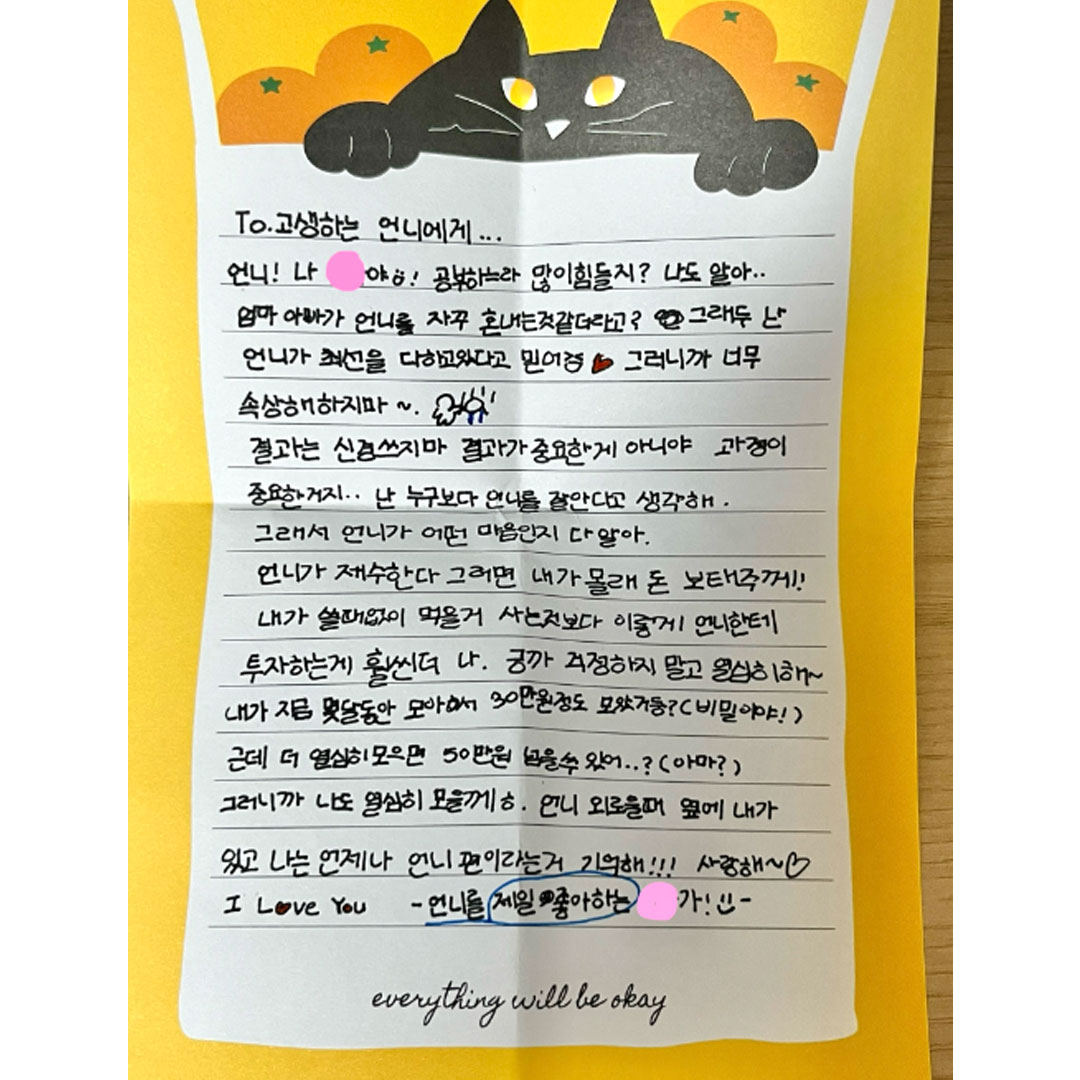 To.고생하는 언니에게...
언니! 나 야ㅎ! 공부하느라 많이힘들지? 나도 알아..
엄마 아빠가 언니를 자꾸 혼내는것같더라고? 그래두 난
언니가 최선을 다하고있다고 믿어 그러니까 너무
속상해하지마 ~.
결과는 신경쓰지마 결과가 중요한게 아니야 과정이
중요한거지.. 난 누구보다 언니를 잘안다고 생각해.
그래서 언니가 어떤 마음인지 다 알아.
언니가 재수한다 그러면 내가 몰래 돈 보태주께!!
내가 쓸때없이 먹을거 사는것보다 이렇게 언니한테
투자하는게 훨씬더 나. 긍까 걱정하지 말고 열심히해~
내가 지금 몇달동안 모아봐서 30만원정도 모았거등?(비밀이야!)
근데 더 열심히모으면 50만원 넘을수 있어..?(아마?)
그러니까 나도 열심히 모을께ㅎ. 언니 외로울때 옆에 내가
있고 나는 언제나 언니 편이라는거 기억해!!! 사랑해~♡
I Love You -언니를 제일 좋아하는 가! -
everything will be okay